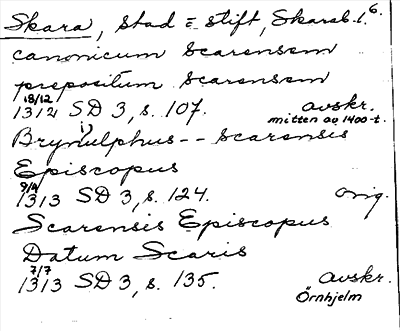 Skara, stad = stift, Skarab. l. 6.
canonicum Scarensem
prepositum Scarensem
18/12
1312 SD 3, s. 107. avskr.
mitten av 1400-t.
Brynulphus - - Scarensis
Episcopus
9/4
1313 SD 3, s. 124. orig.
Scarensis Episcopus
Datum Scaris
7/7
1313 SD 3, s. 135. avskr.
Örnhjelm